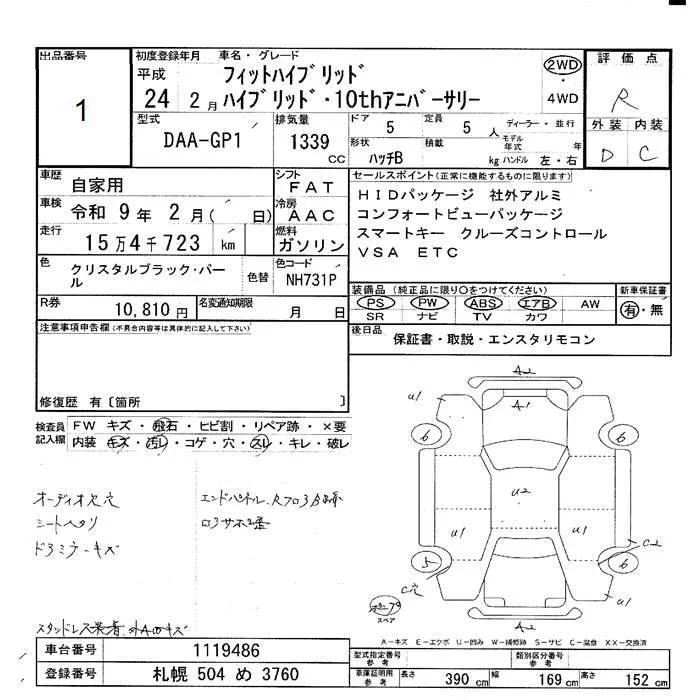 出品番号
1
初度登録年月 車名・グレード
平成
24 2月
フィットハイブリッド
ハイブリッド・10thアニバーサリー
2WD
・
4WD
評価点
R
外装 内装
D C
型式
DAA-GP1
排気量
1339
CC
ドア 5 定員 5 人 ディーラー・並行
形状 ハッチB 積載 kg
モデル年式 年
ハンドル 左・右
車歴 自家用
シフト FAT
車検 令和 9年 2月( 日)
冷房 AAC
走行 15万4千723 km
燃料 ガソリン
セールスポイント(正常に機能するものに限ります)
HIDパッケージ 社外アルミ
コンフォートビューパッケージ
スマートキー クルーズコントロール
VSA ETC
色 クリスタルブラック・パール
色替
色コード NH731P
R券 10,810円
名変通知期限 月 日
装備品(純正品に限り○をつけてください)
PS PW ABS エアB AW
SR ナビ TV カワ
新車保証書
有・無
後日品 保証書・取説・エンスタリモコン
注意事項申告欄(不具合内容等は具体的に記入して下さい)
修復歴 有〔箇所 〕
検査員記入欄
FW キズ・飛石・ヒビ割・リペア跡・×要
内装 キズ・汚レ・コゲ・穴・スレ・キレ・破レ
オーディオ欠穴
シートヘタリ
エンドパネル
A2
A1
u1
6
6
u2
u1
u1
5
6
C穴
C2
u1
A2
スペア
A-キズ E-エクボ U-凹み W-補修跡 S-サビ C-腐食 XX-交換済
車台番号 1119486
登録番号 札幌 504 め 3760
型式指定番号 参考
類別区分番号 参考
車庫証明用 参考 長さ 390 cm 幅 169 cm 高さ 152 cm